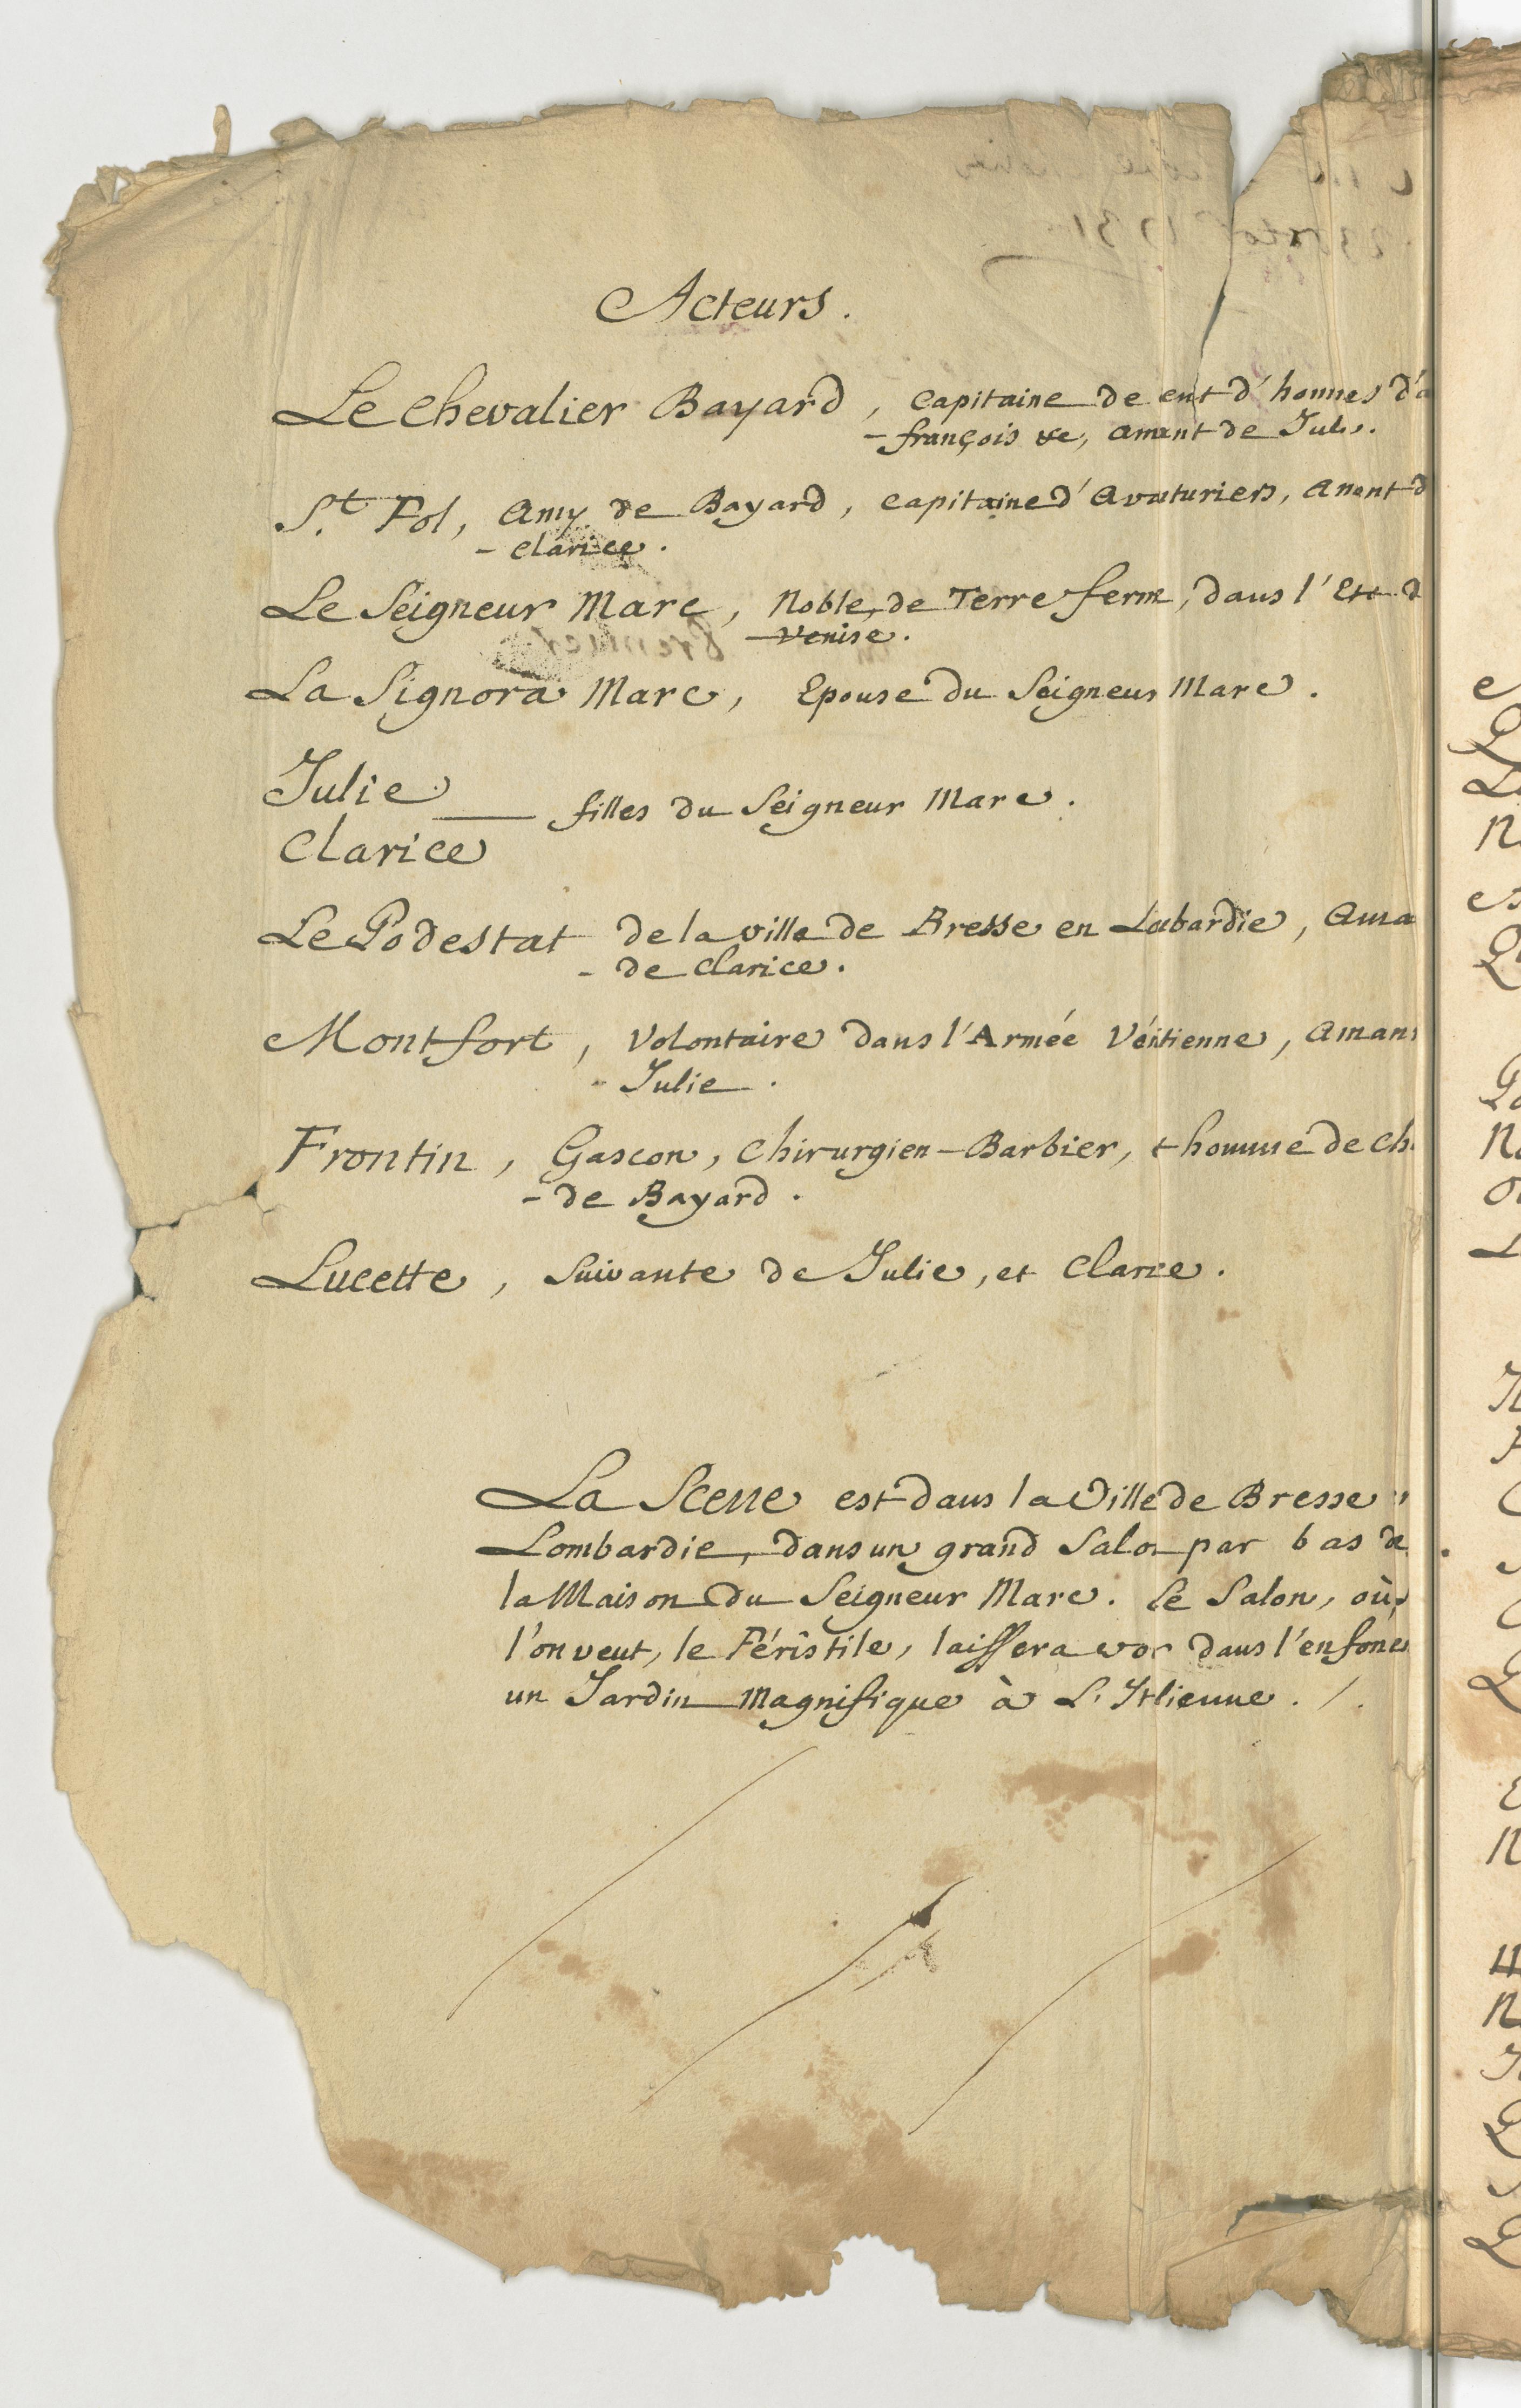 Acteurs.
Le chevalier Bayard, capitaine de cent d'hommes d'a
-françois &c, amant de Julie.
S.t Pol, Amy de Bayard, capitaine d'Avanturiers, Amant d
-clarice.
Le Seigneur Marc, Noble, de Terre ferme, dans l'Etat d
-Venise.
La Signora Marc, Epouse du Seigneur Marc.
Julie
filles du Seigneur Marc.
Clarice
Le Podestat de la ville de Bresse en Lombardie, Ama
-de Clarice.
Montfort, Volontaire dans l'Armée Vénitienne, aman
-Julie.
Frontin, Gascon, Chirurgien-Barbier, & homme de ch
-de Bayard.
Lucette, suivante de Julie, et Clarice.
La Scene est dans la Ville de Bresse
Lombardie, dans un grand Salon par bas de
la Maison du Seigneur Marc. le Salon, où,
l'on veut, le Péristile, laissera voir dans l'enfonc
un Jardin magnifique à L'Italienne. /.